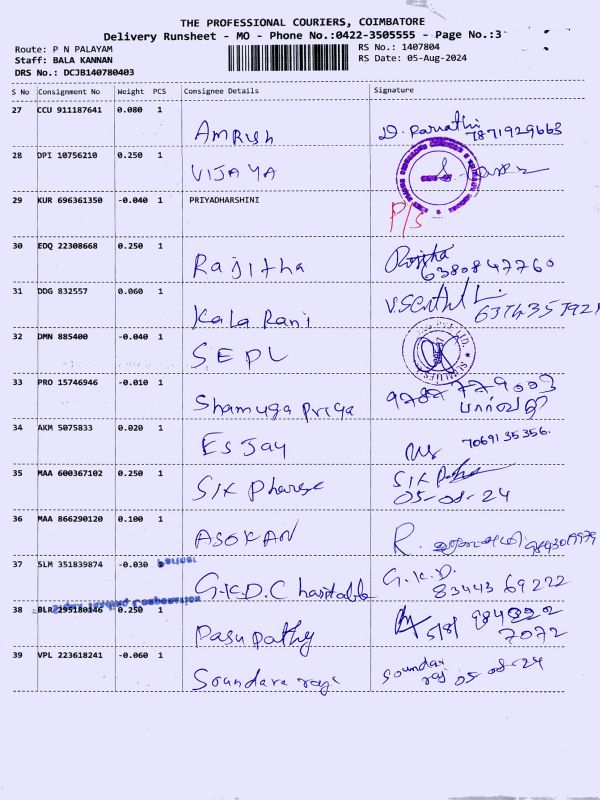 THE PROFESSIONAL COURIERS, COIMBATORE
Delivery Runsheet - MO - Phone No.:0422-3505555 - Page No.:3
Route: P N PALAYAM
RS No.: 1407804
Staff: BALA KANNAN
RS Date: 05-Aug-2024
DRS No.: DCJB140780403
S No Consignment No Weight PCS Consignee Details Signature
27 CCU 911187641 0.080 1 Amrish D. Parvathi
28 DPI 10756210 0.250 1 VIJAYA
29 KUR 696361350 -0.040 1 PRIYADHARSHINI P/S
30 EDQ 22308668 0.250 1 Rajitha
6380847760
31 DDG 832557 0.060 1 Kala Rani
32 DMN 885400 -0.040 1 SEPL
33 PRO 15746946 -0.010 1 Shamuga Priya
பார்வதி
34 AKM 5075833 0.020 1 Es Jay 7069135356.
35 MAA 600367102 0.250 1 Six Pharse Six
05-08-24
36 MAA 866290120 0.100 1 ASOKAN R.
37 SLM 351839874 -0.030 1 G.K.D.Charitable G.K.D.
83443 69222
38 BLR 295180146 0.250 1 Pasupathy 5/8/ 984222
7072
39 VPL 223618241 -0.060 1 Soundara raj Soundar
raj 05-08-24